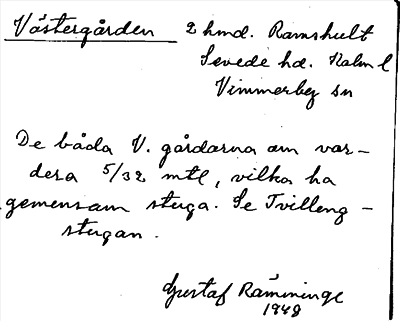 Västergården 2 hmd. Ramshult
Sevede hd. Kalm l
Vimmerby sn
De båda V. gårdarna om var-
dera 5/32 mtl, vilka ha
gemensam stuga. Se Tvilleng-
stugan.
Gustaf Ramninge
1948